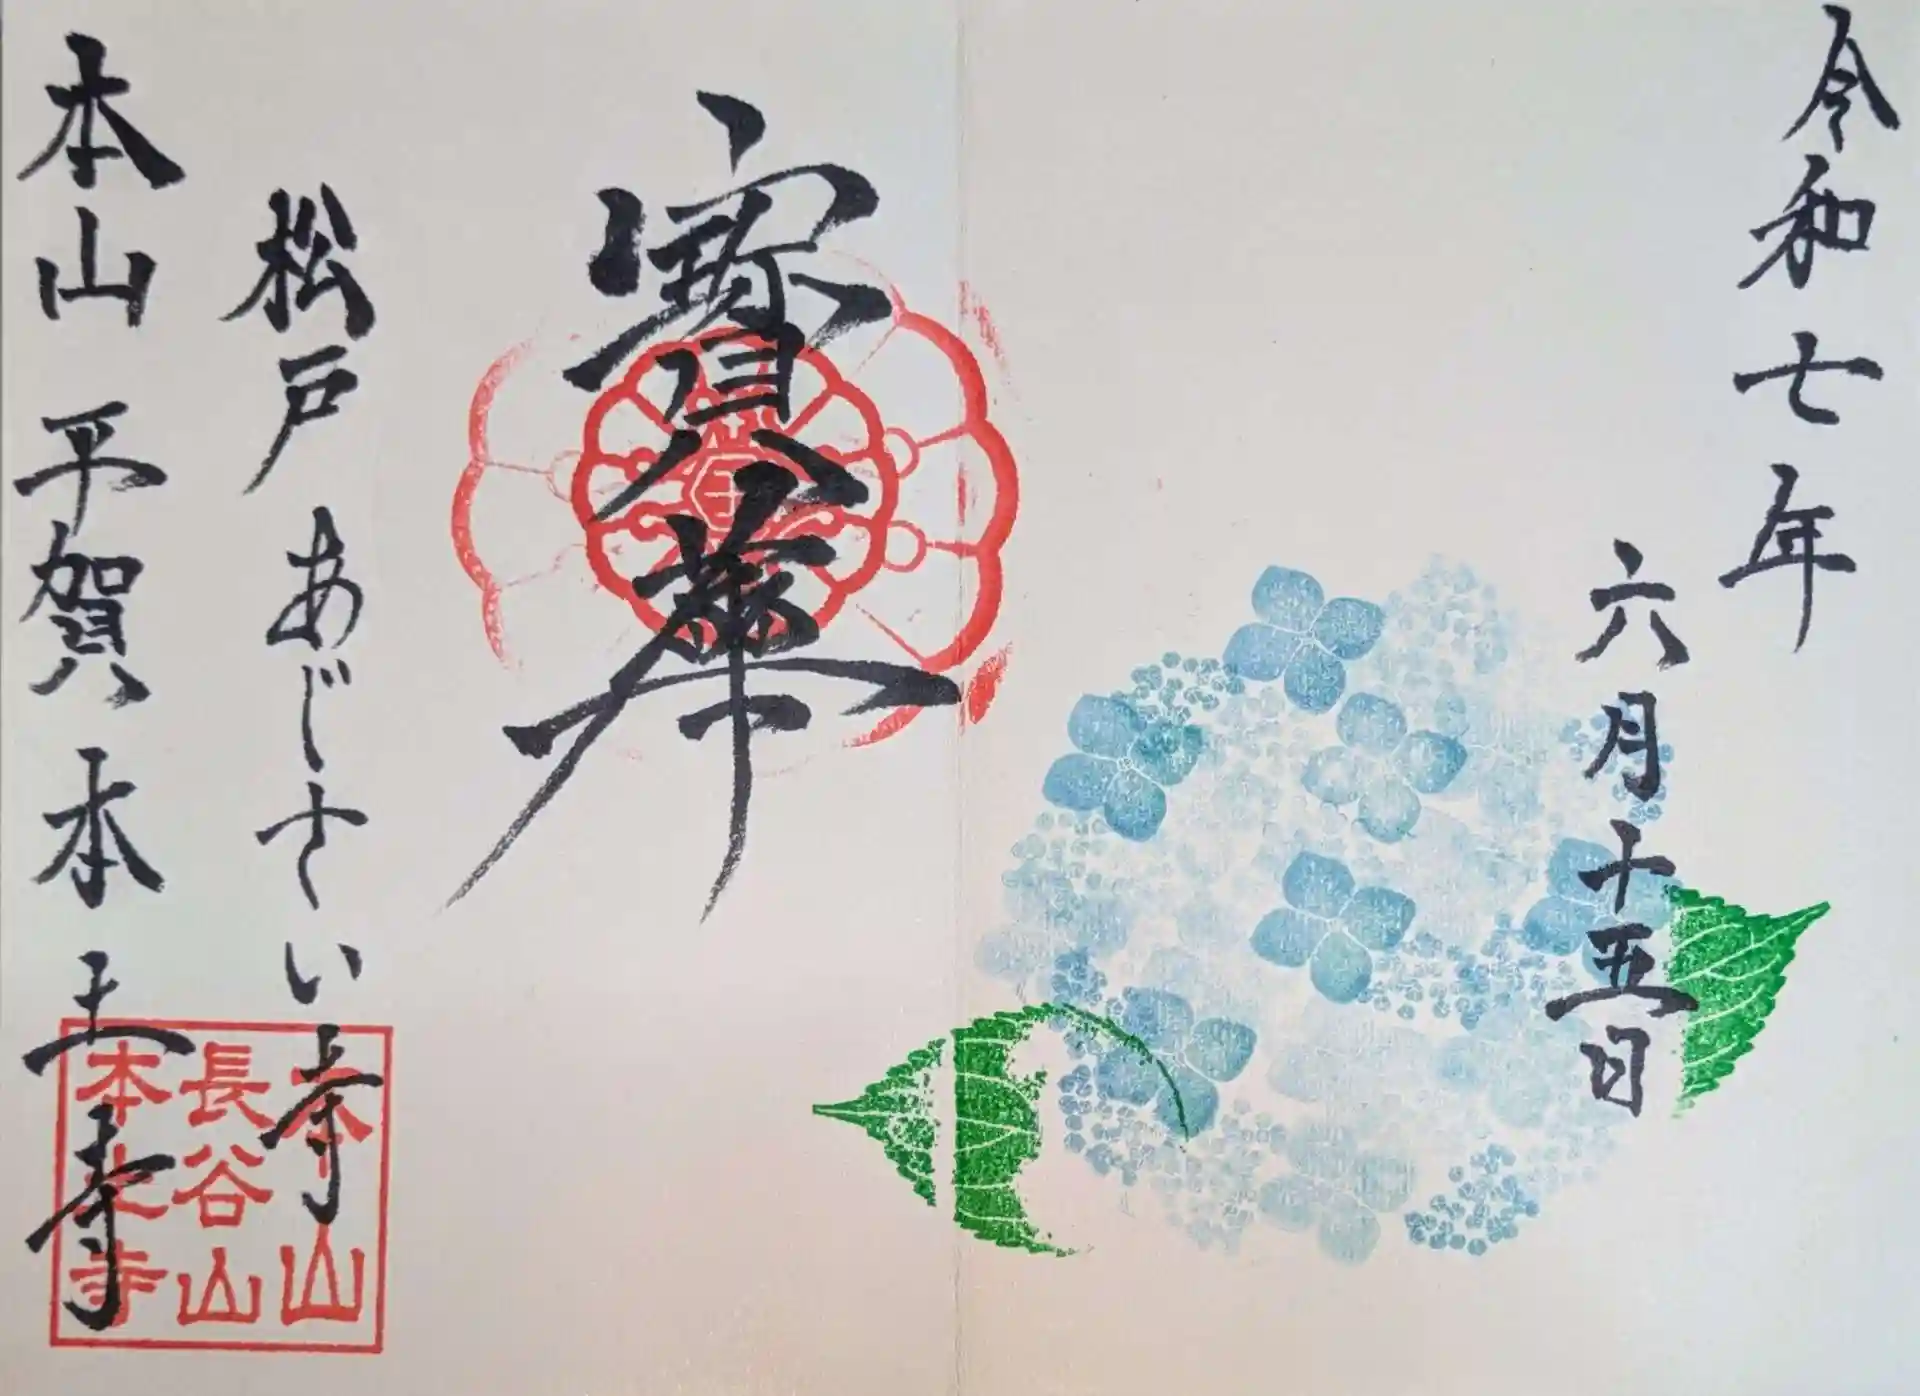 令和七年
六月十五日
寳華
松戸あじさい寺
本山 平賀 本土寺
本山
長谷山
本土寺